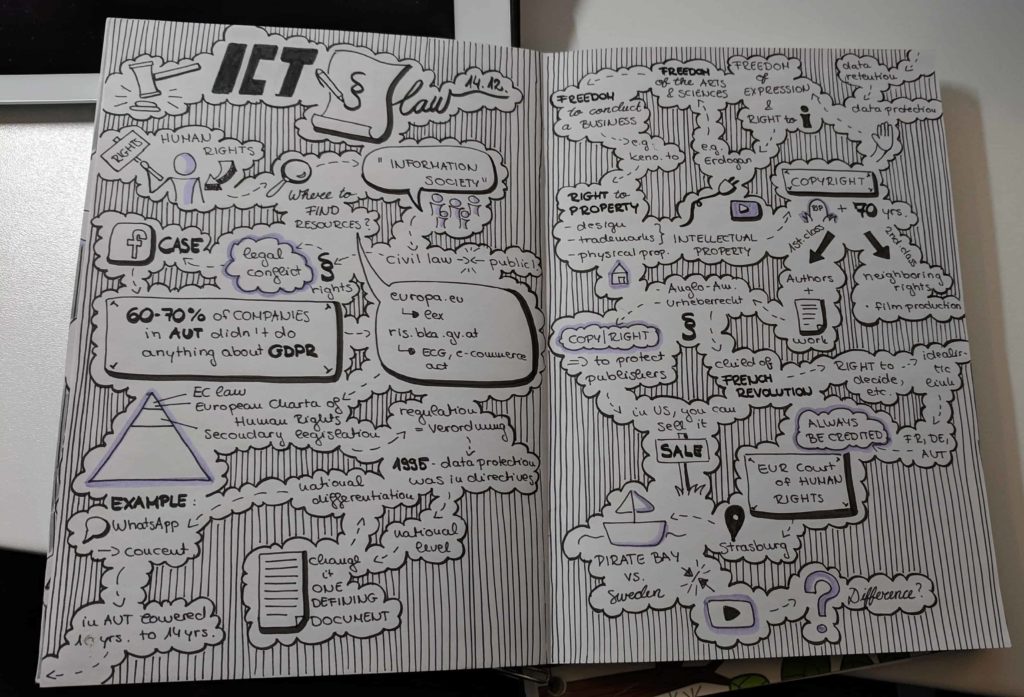 ICT
§
law
14.12.
RIGHTS
HUMAN
RIGHTS
Where to
FIND
RESOURCES?
"INFORMATION
SOCIETY"
f CASE
legal
conflict
§
rights
civil law
publicl.
europa.eu
lex
ris.bka.gv.at
ECG, e-commerce
act
60-70% OF COMPANIES
in AUT didn't do
anything about GDPR
EC law
European Charta of
Human Rights
Secondary legislation
regulation
= verordnung
1995 - data protection
was in directives
national
level
national
differentiation
change
it
ONE
DEFINING
DOCUMENT
EXAMPLE:
WhatsApp
concent
in AUT lowered
16 yrs. to 14 yrs.
FREEDOM
to conduct
a BUSINESS
e.g.
keno.to
FREEDOM
of the ARTS
& SCIENCES
e.g.
Erdogan
FREEDOM
of
EXPRESSION
&
RIGHT to i
data
retention
data protection
RIGHT to
PROPERTY
- design
- trademarks
- physical prop.
INTELLECTUAL
PROPERTY
COPYRIGHT
RIP + 70 yrs.
1st class
2nd class
Authors
+
work
neighboring
rights
film production
Anglo-Am.
Urheberrecht
§
COPY|RIGHT
=> to protect
publishers
child of
FRENCH
REVOLUTION
RIGHT to
decide,
etc.
idealis-
tic
link
FR, DE,
AUT
ALWAYS
BE CREDITED
in US, you can
sell it
SALE
EUR Court
of HUMAN
RIGHTS
Strasburg
PIRATE BAY
vs.
Sweden
? Difference?